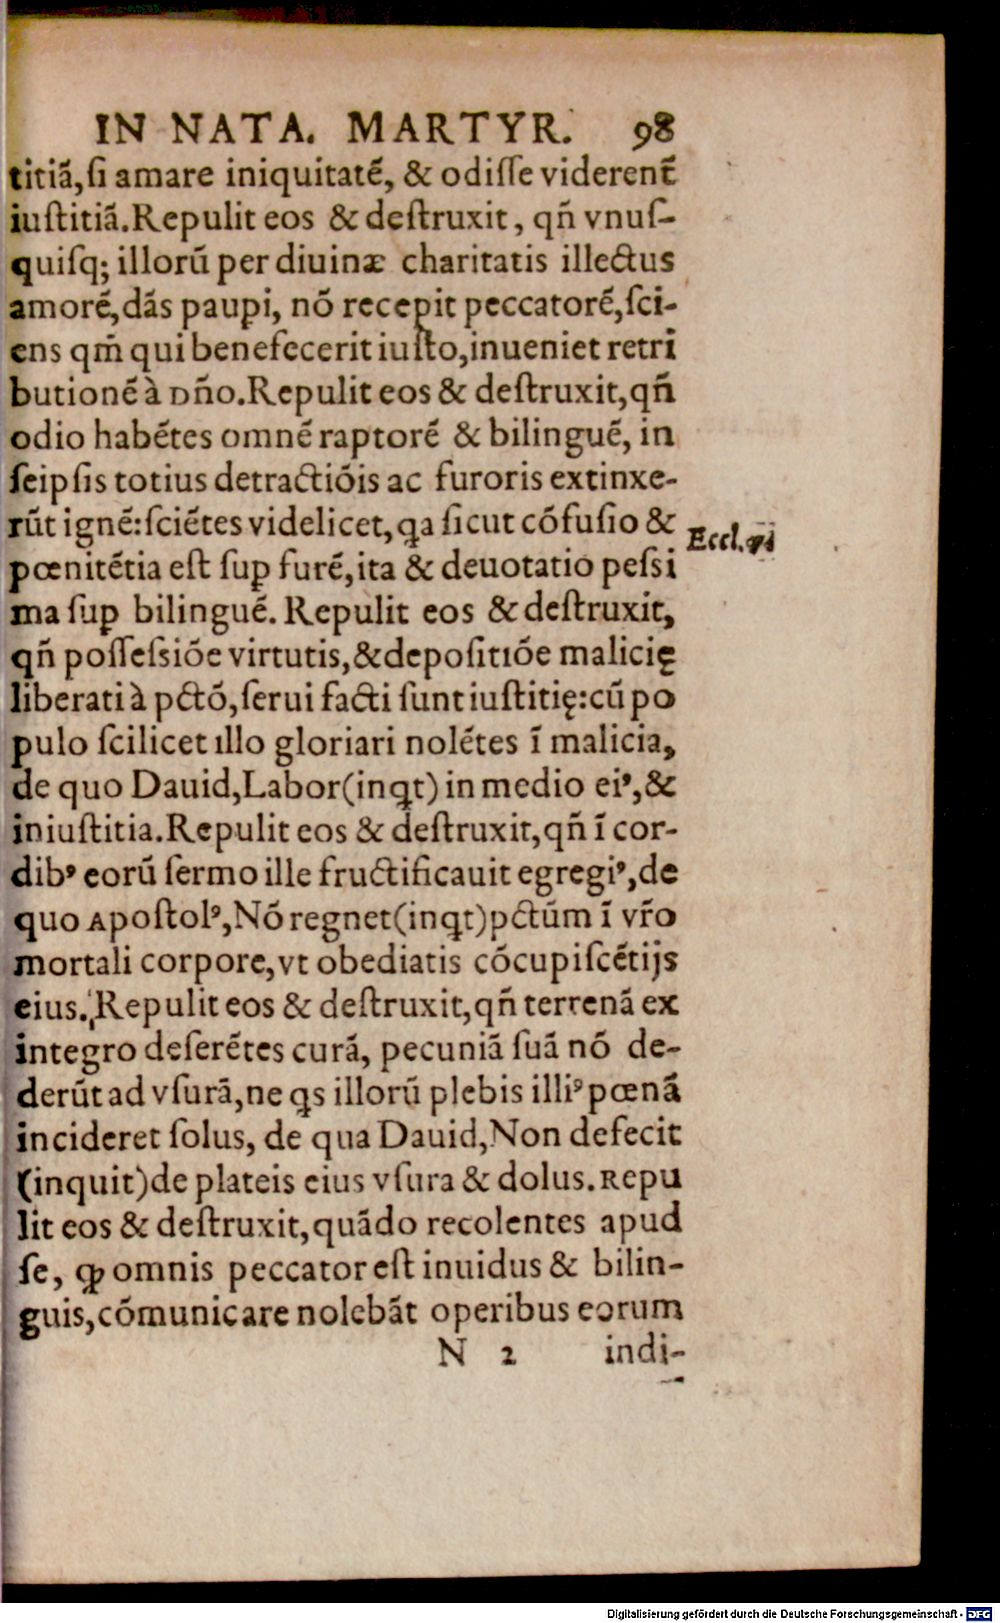 IN NATA. MARTYR. 98
titiā, ſi amare iniquitatē, & odiſſe viderent̄
iuſtitiā. Repulit eos & deſtruxit, qñ vnuſ-
quiſq; illorū per diuinæ charitatis illectus
amorē, dās paupi, nō recepit peccatorē, ſci-
ens qm̄ qui benefecerit iuſto, inueniet retri
butionē à Dño. Repulit eos & deſtruxit, qñ
odio habētes omnē raptorē & bilinguē, in
ſeipſis totius detractiōis ac furoris extinxe-
rūt ignē: ſciētes videlicet, qa ſicut cōfuſio &
pœnitētia eſt ſuꝑ furē, ita & deuotatio peſsi
ma ſuꝑ bilinguē. Repulit eos & deſtruxit,
qñ poſſeſsiōe virtutis, & depoſitiōe malicię
liberati à pctō, ſerui facti ſunt iuſtitię: cū po
pulo ſcilicet illo gloriari nolētes ī malicia,
de quo Dauid, Labor (inqt) in medio eiꝰ, &
iniuſtitia. Repulit eos & deſtruxit, qñ ī cor-
dibꝰ eorū ſermo ille fructificauit egregiꝰ, de
quo Apoſtolꝰ, Nō regnet (inqt) pctūm ī vr̄o
mortali corpore, vt obediatis cōcupiſcētijs
eius. Repulit eos & deſtruxit, qñ terrenā ex
integro deſerētes curā, pecuniā ſuā nō de-
derūt ad vſurā, ne qs illorū plebis illiꝰ pœnā
incideret ſolus, de qua Dauid, Non defecit
(inquit) de plateis eius vſura & dolus. Repu
lit eos & deſtruxit, quādo recolentes apud
ſe, ꝙ omnis peccator eſt inuidus & bilin-
guis, cōmunicare nolebāt operibus eorum
N 2 indi-
Eccl. vi
Digitalisierung gefördert durch die Deutsche Forschungsgemeinschaft - DFG